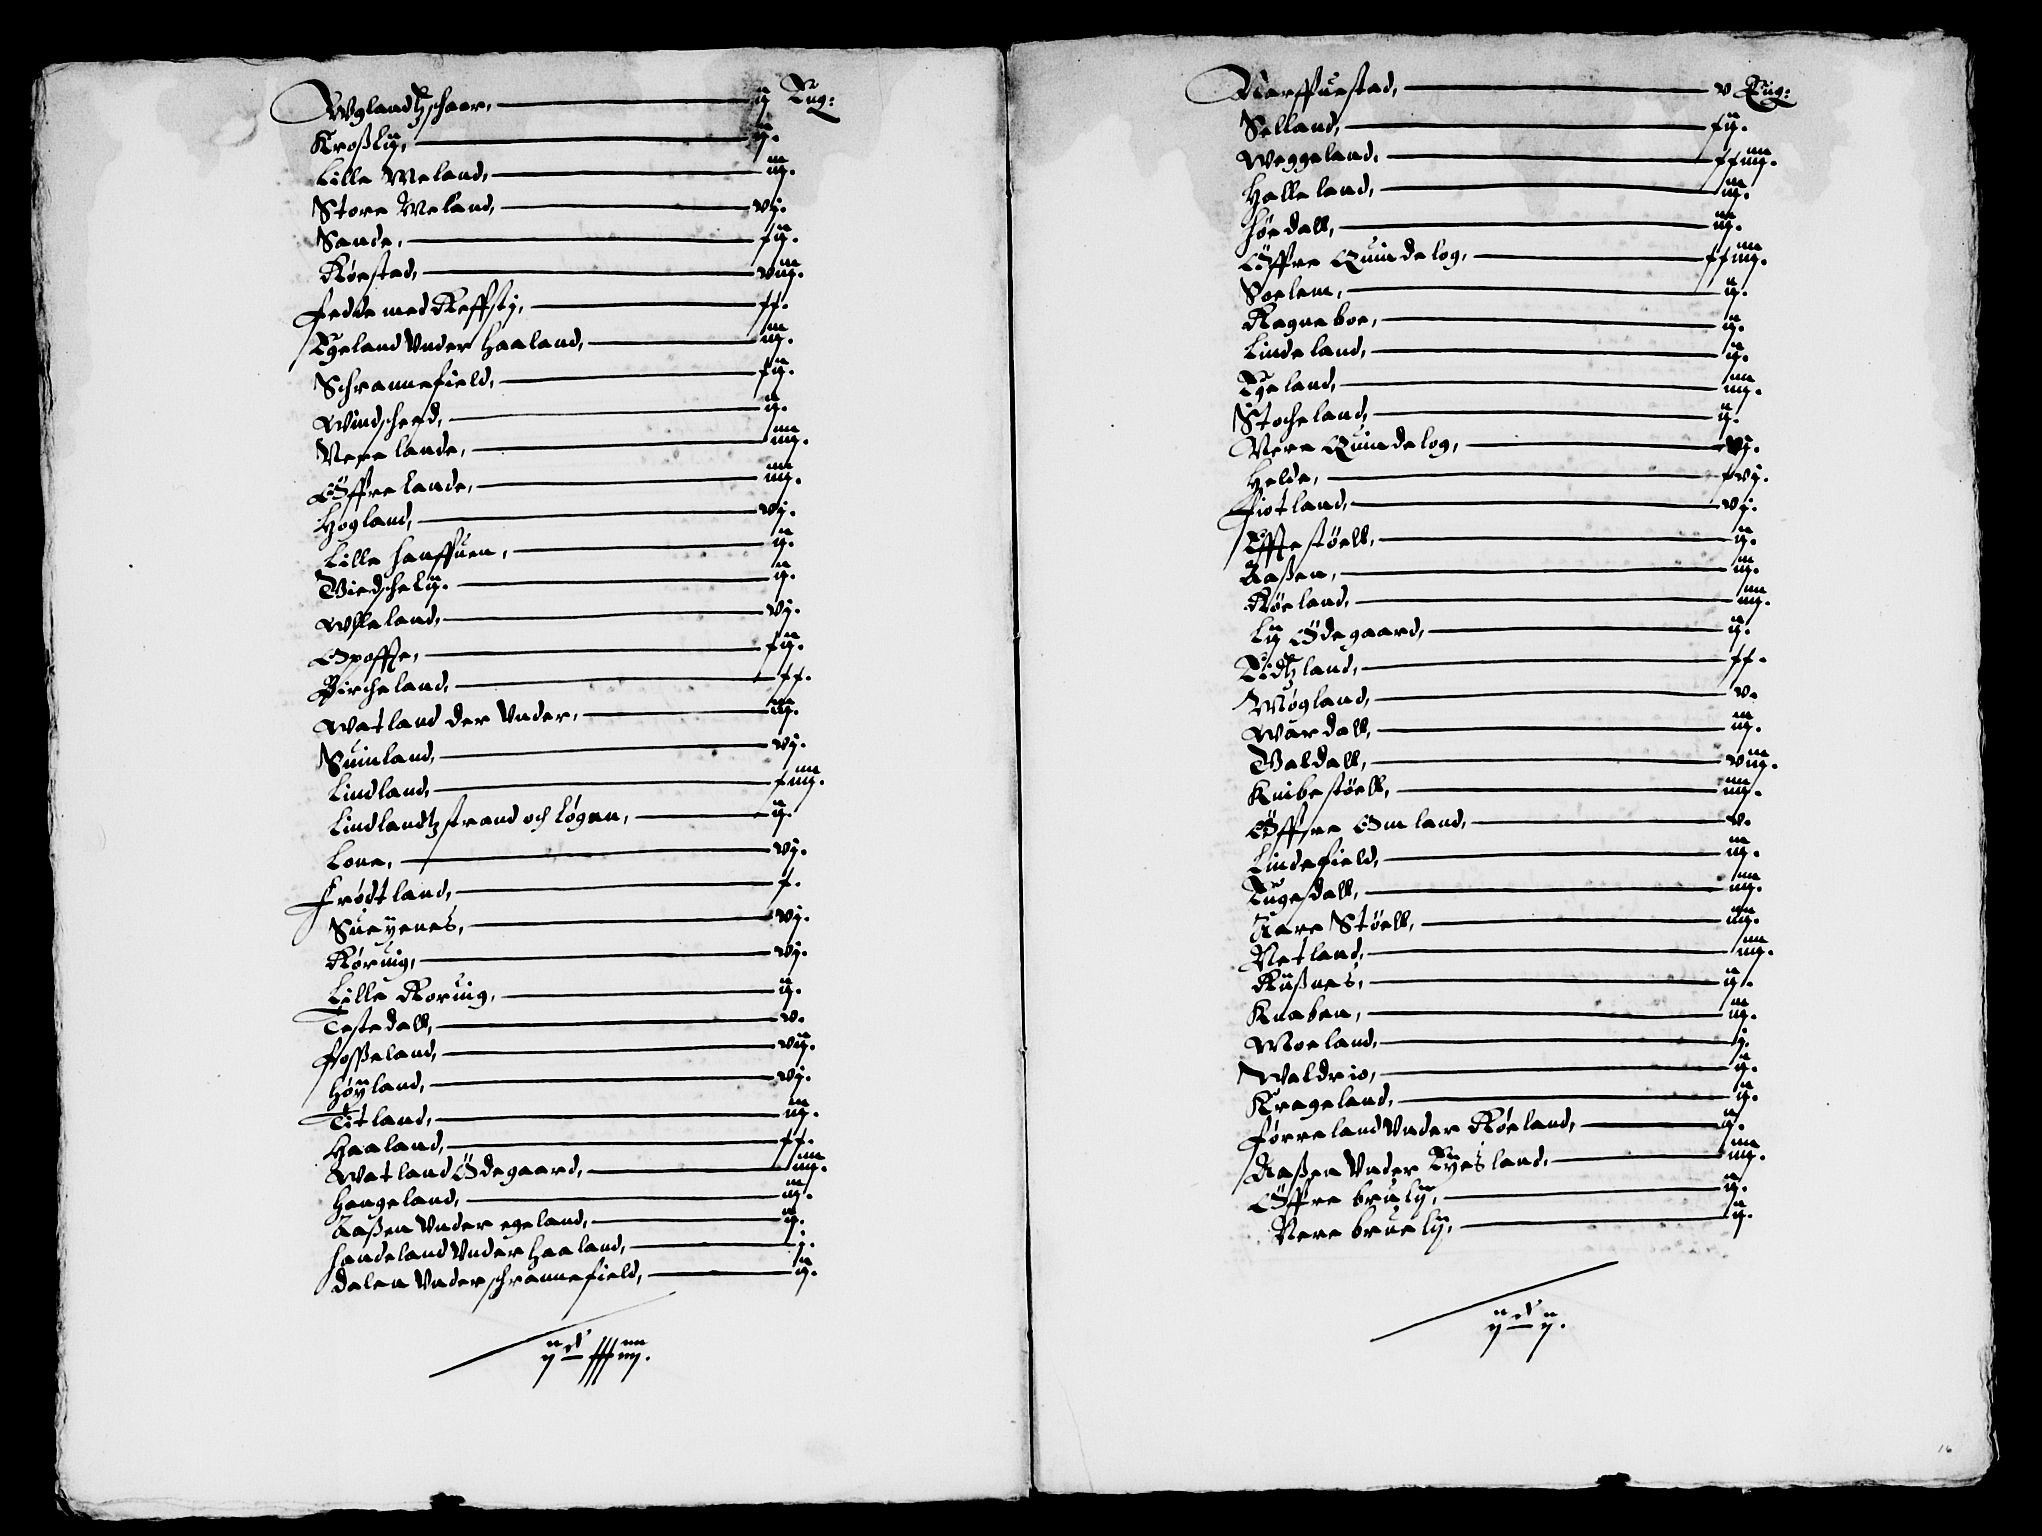 Wglandtzschaar, ij Tug:
Kroßlij, ij.
Lille Meland, iij.
Store Meland, vj.
Sande, xij.
Røestad, viij.
Fedde med Reffstj, xx.
Egeland Vnder Haaland, iij.
Schrannefield, xij.
Windscheed, ij.
Nerelande, iiij.
Öffrelande, iiij.
Hogland, vj.
Lille Hanffuen, ij.
Viedschelij. ij.
Wlleland, vj.
Opofte, xij.
Bircheland, xx.
Watland der Vnder, iij.
Suinland, vj.
Lindland, xiiij.
Lindlandtzstrand och Løgen, ij.
Lone, vj.
Frødtland, x.
Sueyenes, vj.
Røruig, vj.
Lille Roruig, ij.
Testedall, v.
Fosseland, vij.
Høyland, vj.
Titland, iij.
Haaland, xx.
Watland Ödegaard, iiij.
Hengeland, iij.
Aaßen Vnder egeland, ij.
Handeland Vnder Haaland, j.
Dalen Vnder schrannefield, ij.
ij c xxxiiij.
Narffuestad, v Tug:
Selland, xij.
Weggeland, xxiiij.
Halleland, iij.
Höedall, iij.
Öffre Quindelog, xxiiij.
Soelem, ij.
Ragneboe, ij.
Lindeland, ij.
Egeland, iiij.
Stocheland, ij.
Nere Quindelog, vj.
Helde, xvj.
Fiotland, vj.
Efftestöell, ij.
Aaßen, iij.
Röeland, iiij.
Lij Ödegaard, ij.
Eidtzland, xx.
Møgland, v.
Wardall, iij.
Valdall, viij.
Knibestöell, iiij.
Öffre Omland, v.
Lindefield, iij.
Eugesdall, iiij.
Aare Stöell, iiij.
Netland, iiij.
Rußnes, ij.
Knaben, iij.
Moeland, j.
Waldrio, ij.
Krageland, ij.
Førreland Vnder Røeland, ij.
Aaßen Vnder Eyesland, iiij.
Öffre bruelij, ij.
Nere bruelij, ij.
ij c ij.
16